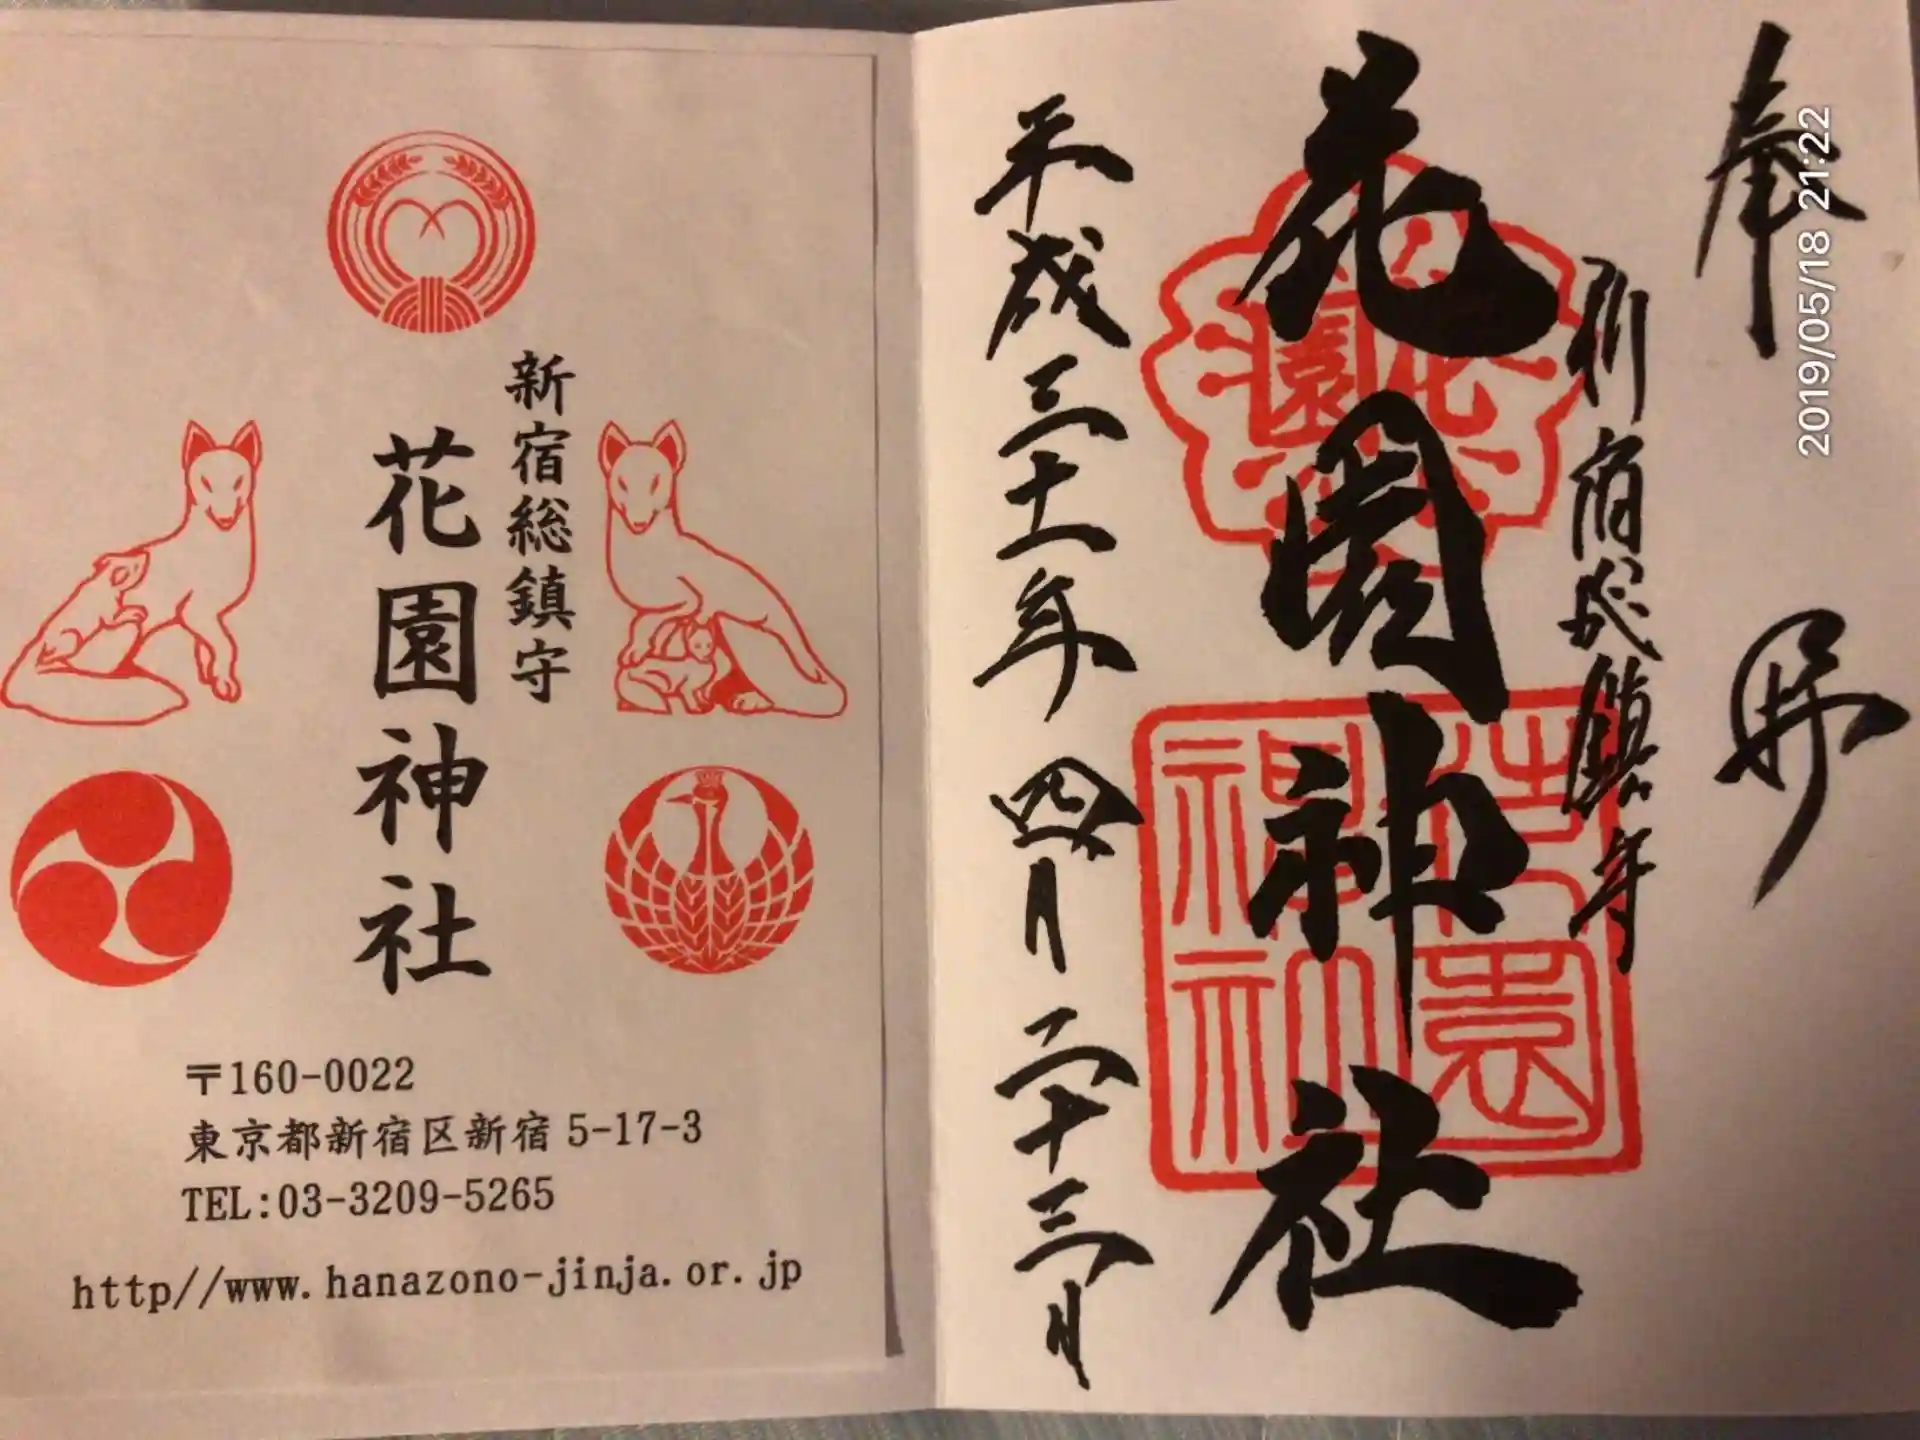 奉
拝
新宿総鎮守
花園神社
平成三十一年四月二十三日
花園
花園神社
新宿総鎮守
花園神社
〒160-0022
東京都新宿区新宿5-17-3
TEL:03-3209-5265
http//www.hanazono-jinja.or.jp
2019/05/18 21:22